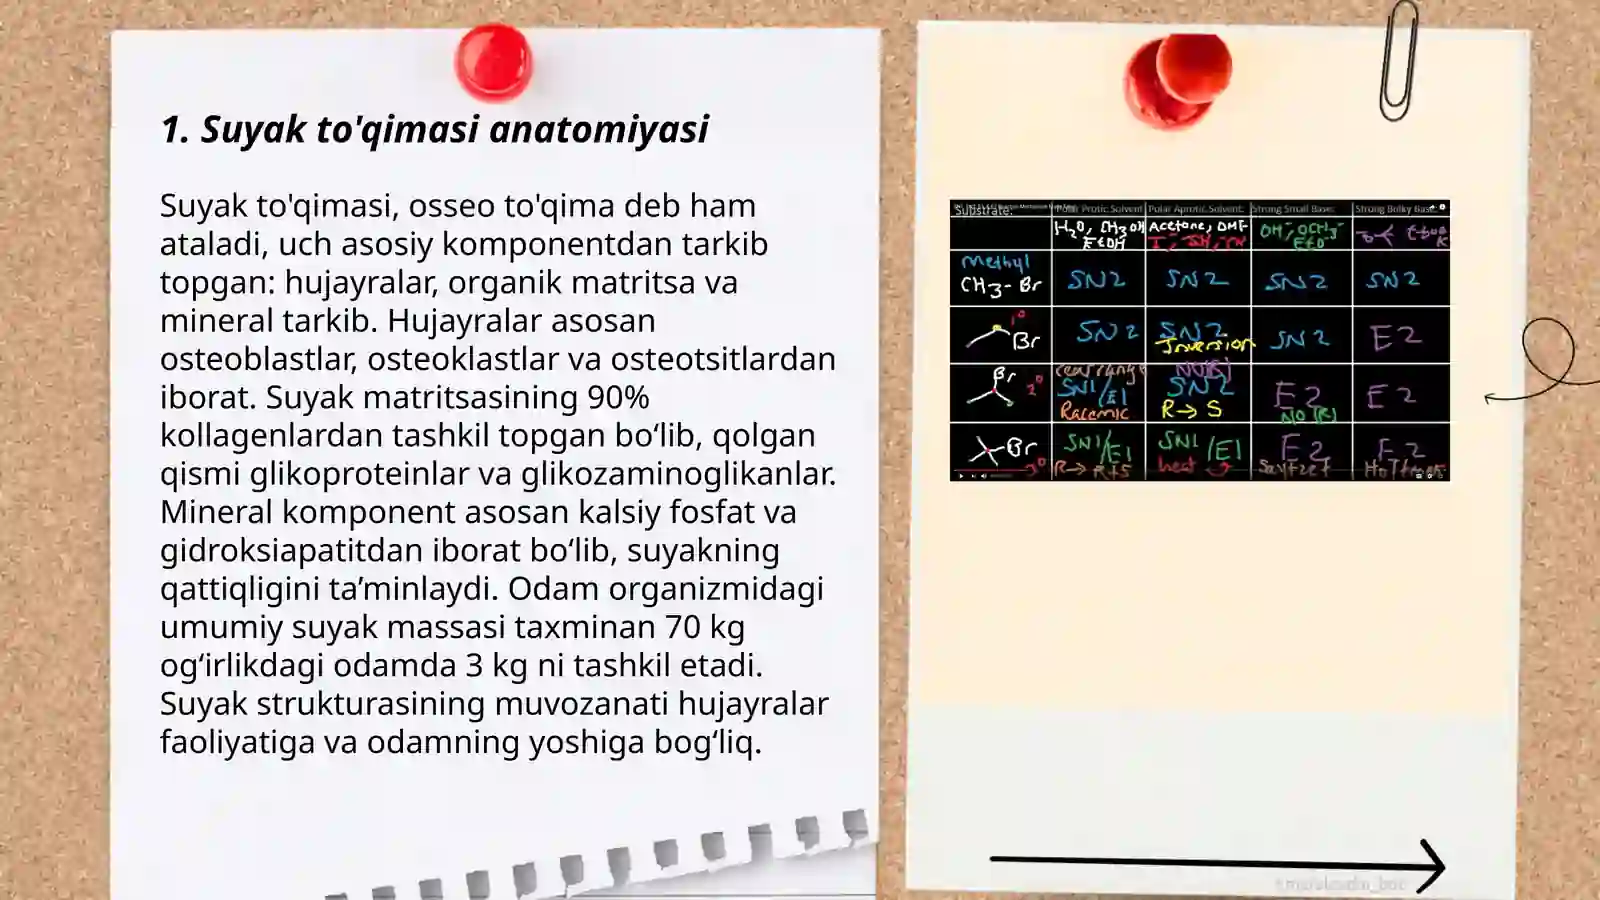 1. Suyak to'qimasi anatomiyasi
Suyak to'qimasi, osseo to'qima deb ham
ataladi, uch asosiy komponentdan tarkib
topgan: hujayralar, organik matritsa va
mineral tarkib. Hujayralar asosan
osteoblastlar, osteoklastlar va osteotsitlardan
iborat. Suyak matritsasining 90%
kollagenlardan tashkil topgan bo‘lib, qolgan
qismi glikoproteinlar va glikozaminoglikanlar.
Mineral komponent asosan kalsiy fosfat va
gidroksiapatitdan iborat bo‘lib, suyakning
qattiqligini ta’minlaydi. Odam organizmidagi
umumiy suyak massasi taxminan 70 kg
og‘irlikdagi odamda 3 kg ni tashkil etadi.
Suyak strukturasining muvozanati hujayralar
faoliyatiga va odamning yoshiga bog‘liq.
Substrate: Polar Protic Solvent Polar Aprotic Solvent: Strong Small Base: Strong Bulky Base:
H2O, CH3OH Acetone, DMF OH⁻, OCH3⁻
EtOH I⁻, SH⁻, CN EtO⁻
Methyl
CH3-Br SN2 SN2 SN2 SN2
1° Br SN2 SN2 SN2 E2
Inversion
Br rearrange
2° SN1/E1 SN2 E2 E2
Racemic R→S
Br SN1/E1 SN1/E1 E2 E2
3° R→R+S heat Saytzef